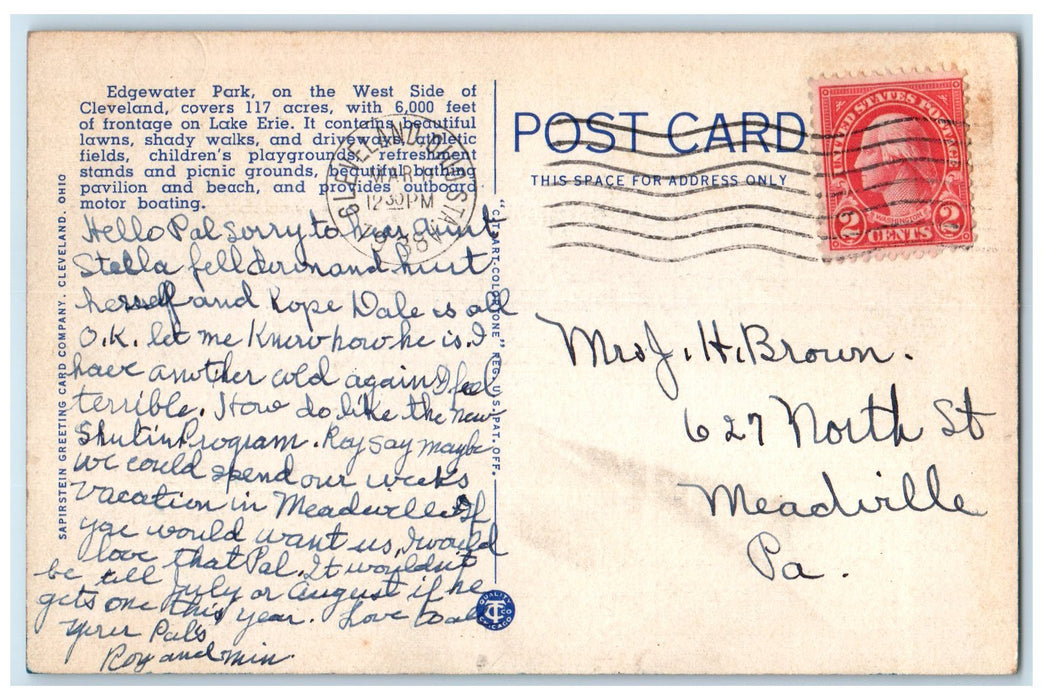 Edgewater Park, on the West Side of
Cleveland, covers 117 acres, with 6,000 feet
of frontage on Lake Erie. It contains beautiful
lawns, shady walks, and driveways, athletic
fields, children's playgrounds, refreshment
stands and picnic grounds, beautiful bathing
pavilion and beach, and provides outboard
motor boating.
Hello Pal sorry to hear Aunt
Stella fell down and hurt
herself and hope Dale is all
O.K. let me know how he is. I
have another cold again I feel
terrible. How do like the new
Shutin Program. Roy say maybe
we could spend our weeks
vacation in Meadville If
you would want us, I would
love that Pal. It wouldn't
be till July or August if he
gets one this year. Love to all
your Pals
Roy and Min.
SAPIRSTEIN GREETING CARD COMPANY, CLEVELAND, OHIO
"C.T. ART-COLORTONE" REG. U.S. PAT. OFF.
QUALITY
CT CO
CHICAGO
POST CARD
THIS SPACE FOR ADDRESS ONLY
CLEVELAND, OHIO STA.
MAR
12 30 PM
38
UNITED STATES POSTAGE
WASHINGTON
2 CENTS 2
Mrs J. H. Brown.
627 North St
Meadville
Pa.